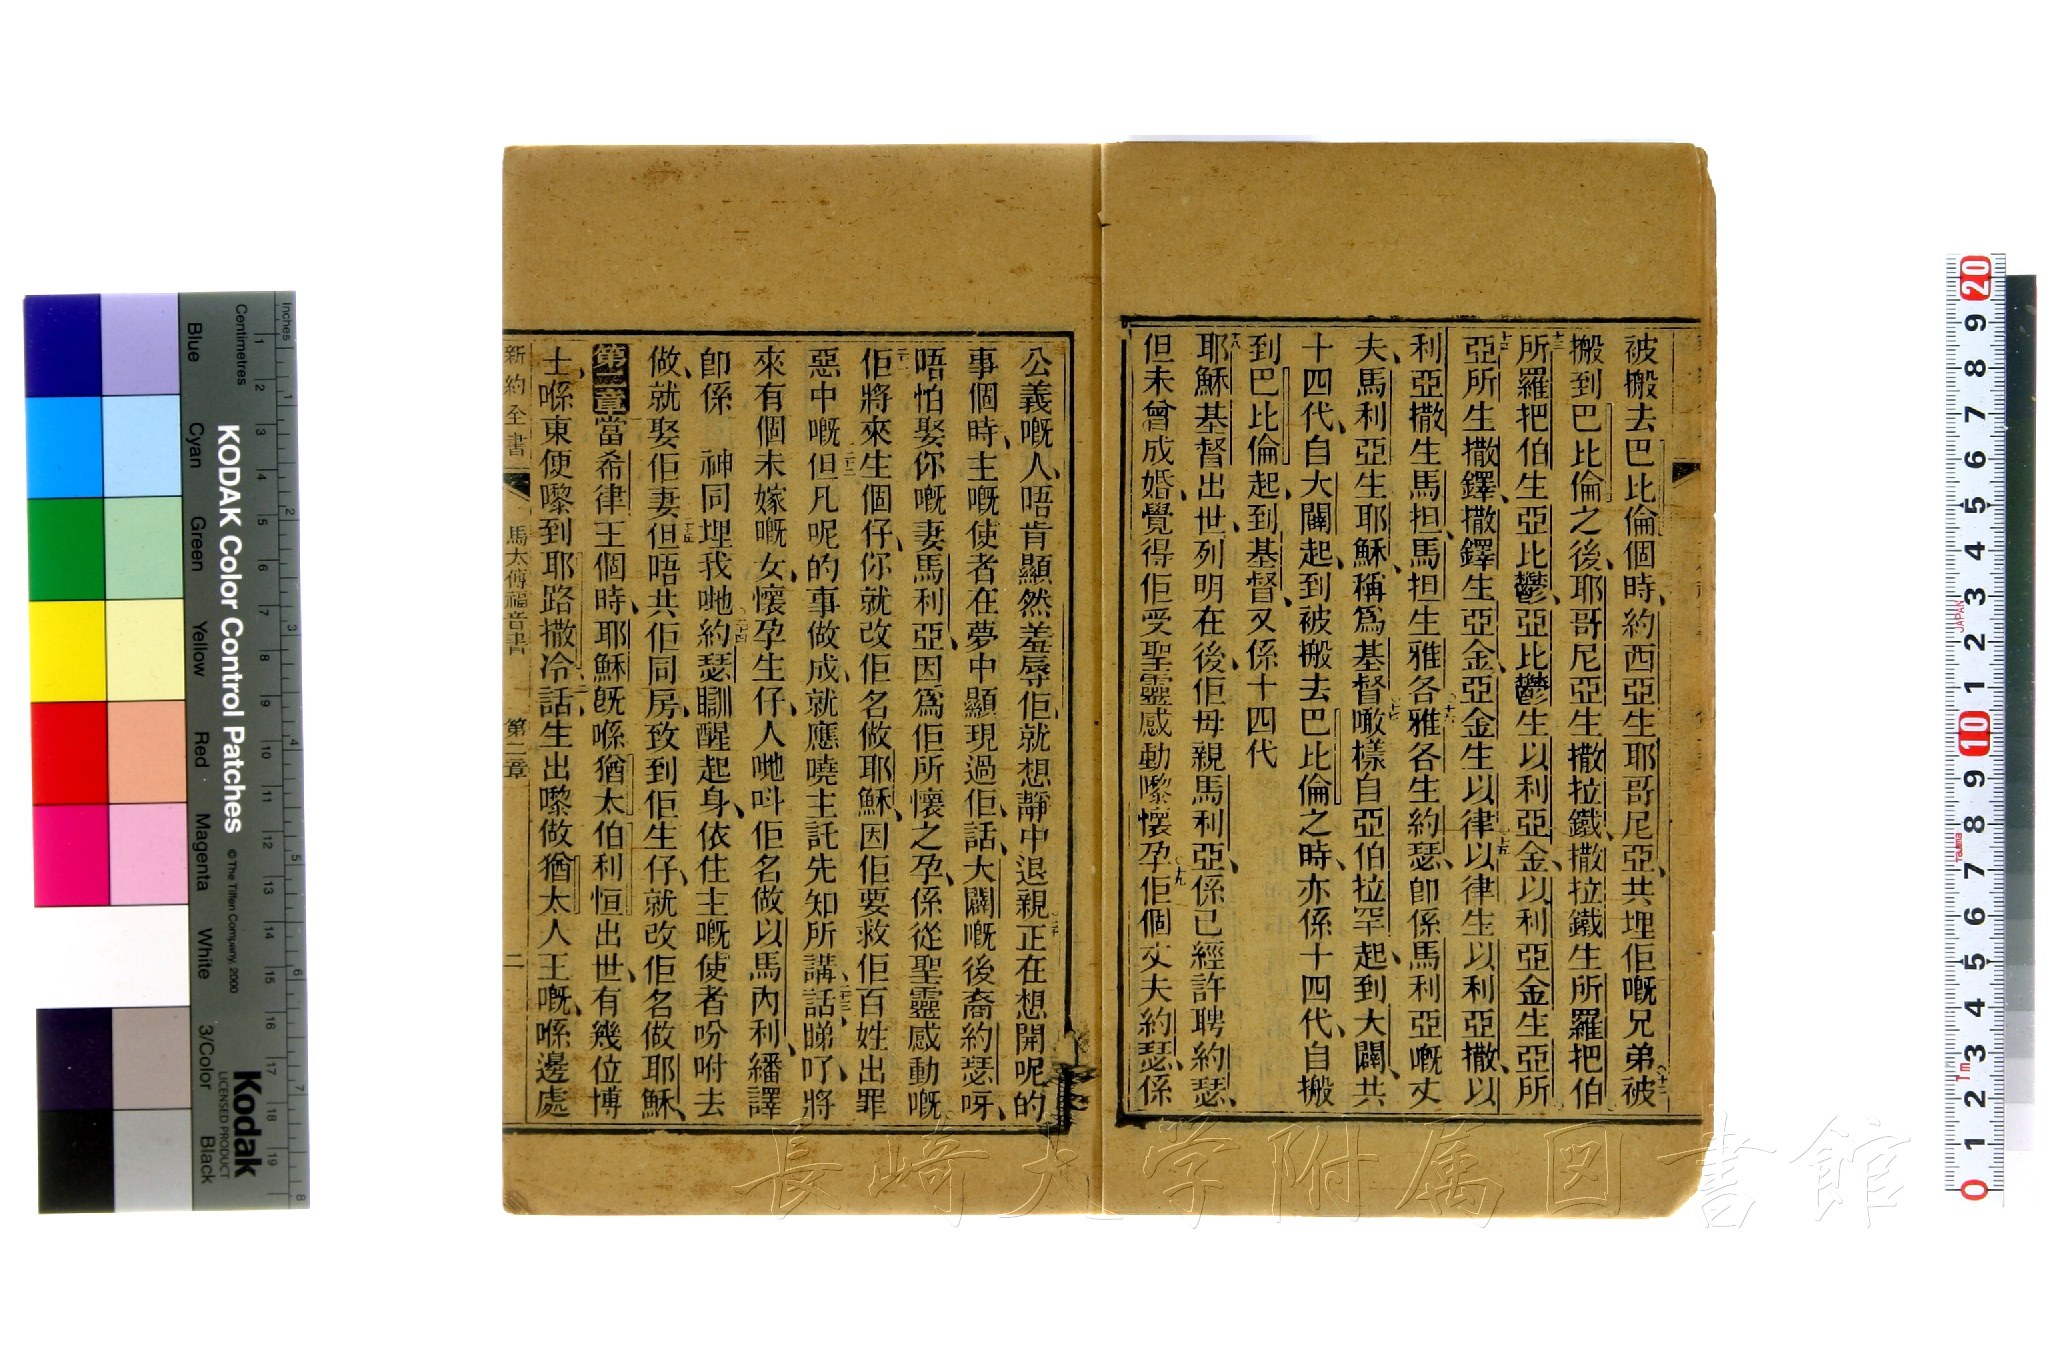 被搬去巴比倫個時、約西亞生耶哥尼亞、共埋佢嘅兄弟、被
搬到巴比倫之後、耶哥尼亞生撒拉鐵、撒拉鐵生所羅把伯
所羅把伯生亞比鬱、亞比鬱生以利亞金、以利亞金生亞所
亞所生撒鐸、撒鐸生亞金、亞金生以律、以律生以利亞撒、以
利亞撒生馬担、馬担生雅各、雅各生約瑟、卽係馬利亞嘅丈
夫、馬利亞生耶穌、稱爲基督、噉樣自亞伯拉罕起、到大闢、共
十四代、自大闢起、到被搬去巴比倫之時、亦係十四代、自搬
到巴比倫起、到基督、又係十四代
耶穌基督出世、列明在後、佢母親馬利亞、係已經許聘約瑟、
但未曾成婚、覺得佢受聖靈感動嚟懷孕、佢個丈夫約瑟、係
公義嘅人、唔肯顯然羞辱佢、就想靜中退親、正在想開呢的
事個時、主嘅使者在夢中顯現過佢、話、大闢嘅後裔約瑟呀、
唔怕娶你嘅妻馬利亞、因爲佢所懷之孕、係從聖靈感動嘅
佢將來生個仔、你就改佢名做耶穌、因佢要救佢百姓出罪
惡中嘅、但凡呢的事做成、就應嘵主託先知所講話、睇吖、將
來有個未嫁嘅女、懷孕生仔、人哋呌佢名做以馬內利、繙譯
卽係 神同埋我哋、約瑟瞓醒起身、依住主嘅使者吩咐去
做、就娶佢妻、但唔共佢同房、致到佢生仔、就改佢名做耶穌、
第二章當希律王個時、耶穌旣喺猶太伯利恒出世、有幾位博
士、喺東便嚟到耶路撒冷、話、生出嚟做猶太人王嘅、喺邊處
新約全書 馬太傅福音書 第二章 二
KODAK Color Control Patches
© The Tiffen Company, 2000
Kodak
LICENSED PRODUCT
Inches
Centimetres
Blue Cyan Green Yellow Red Magenta White 3/Color Black
長崎大学附属図書館